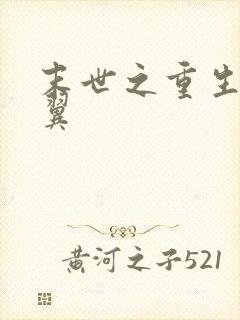 末世之重生
翼
黄河之子521